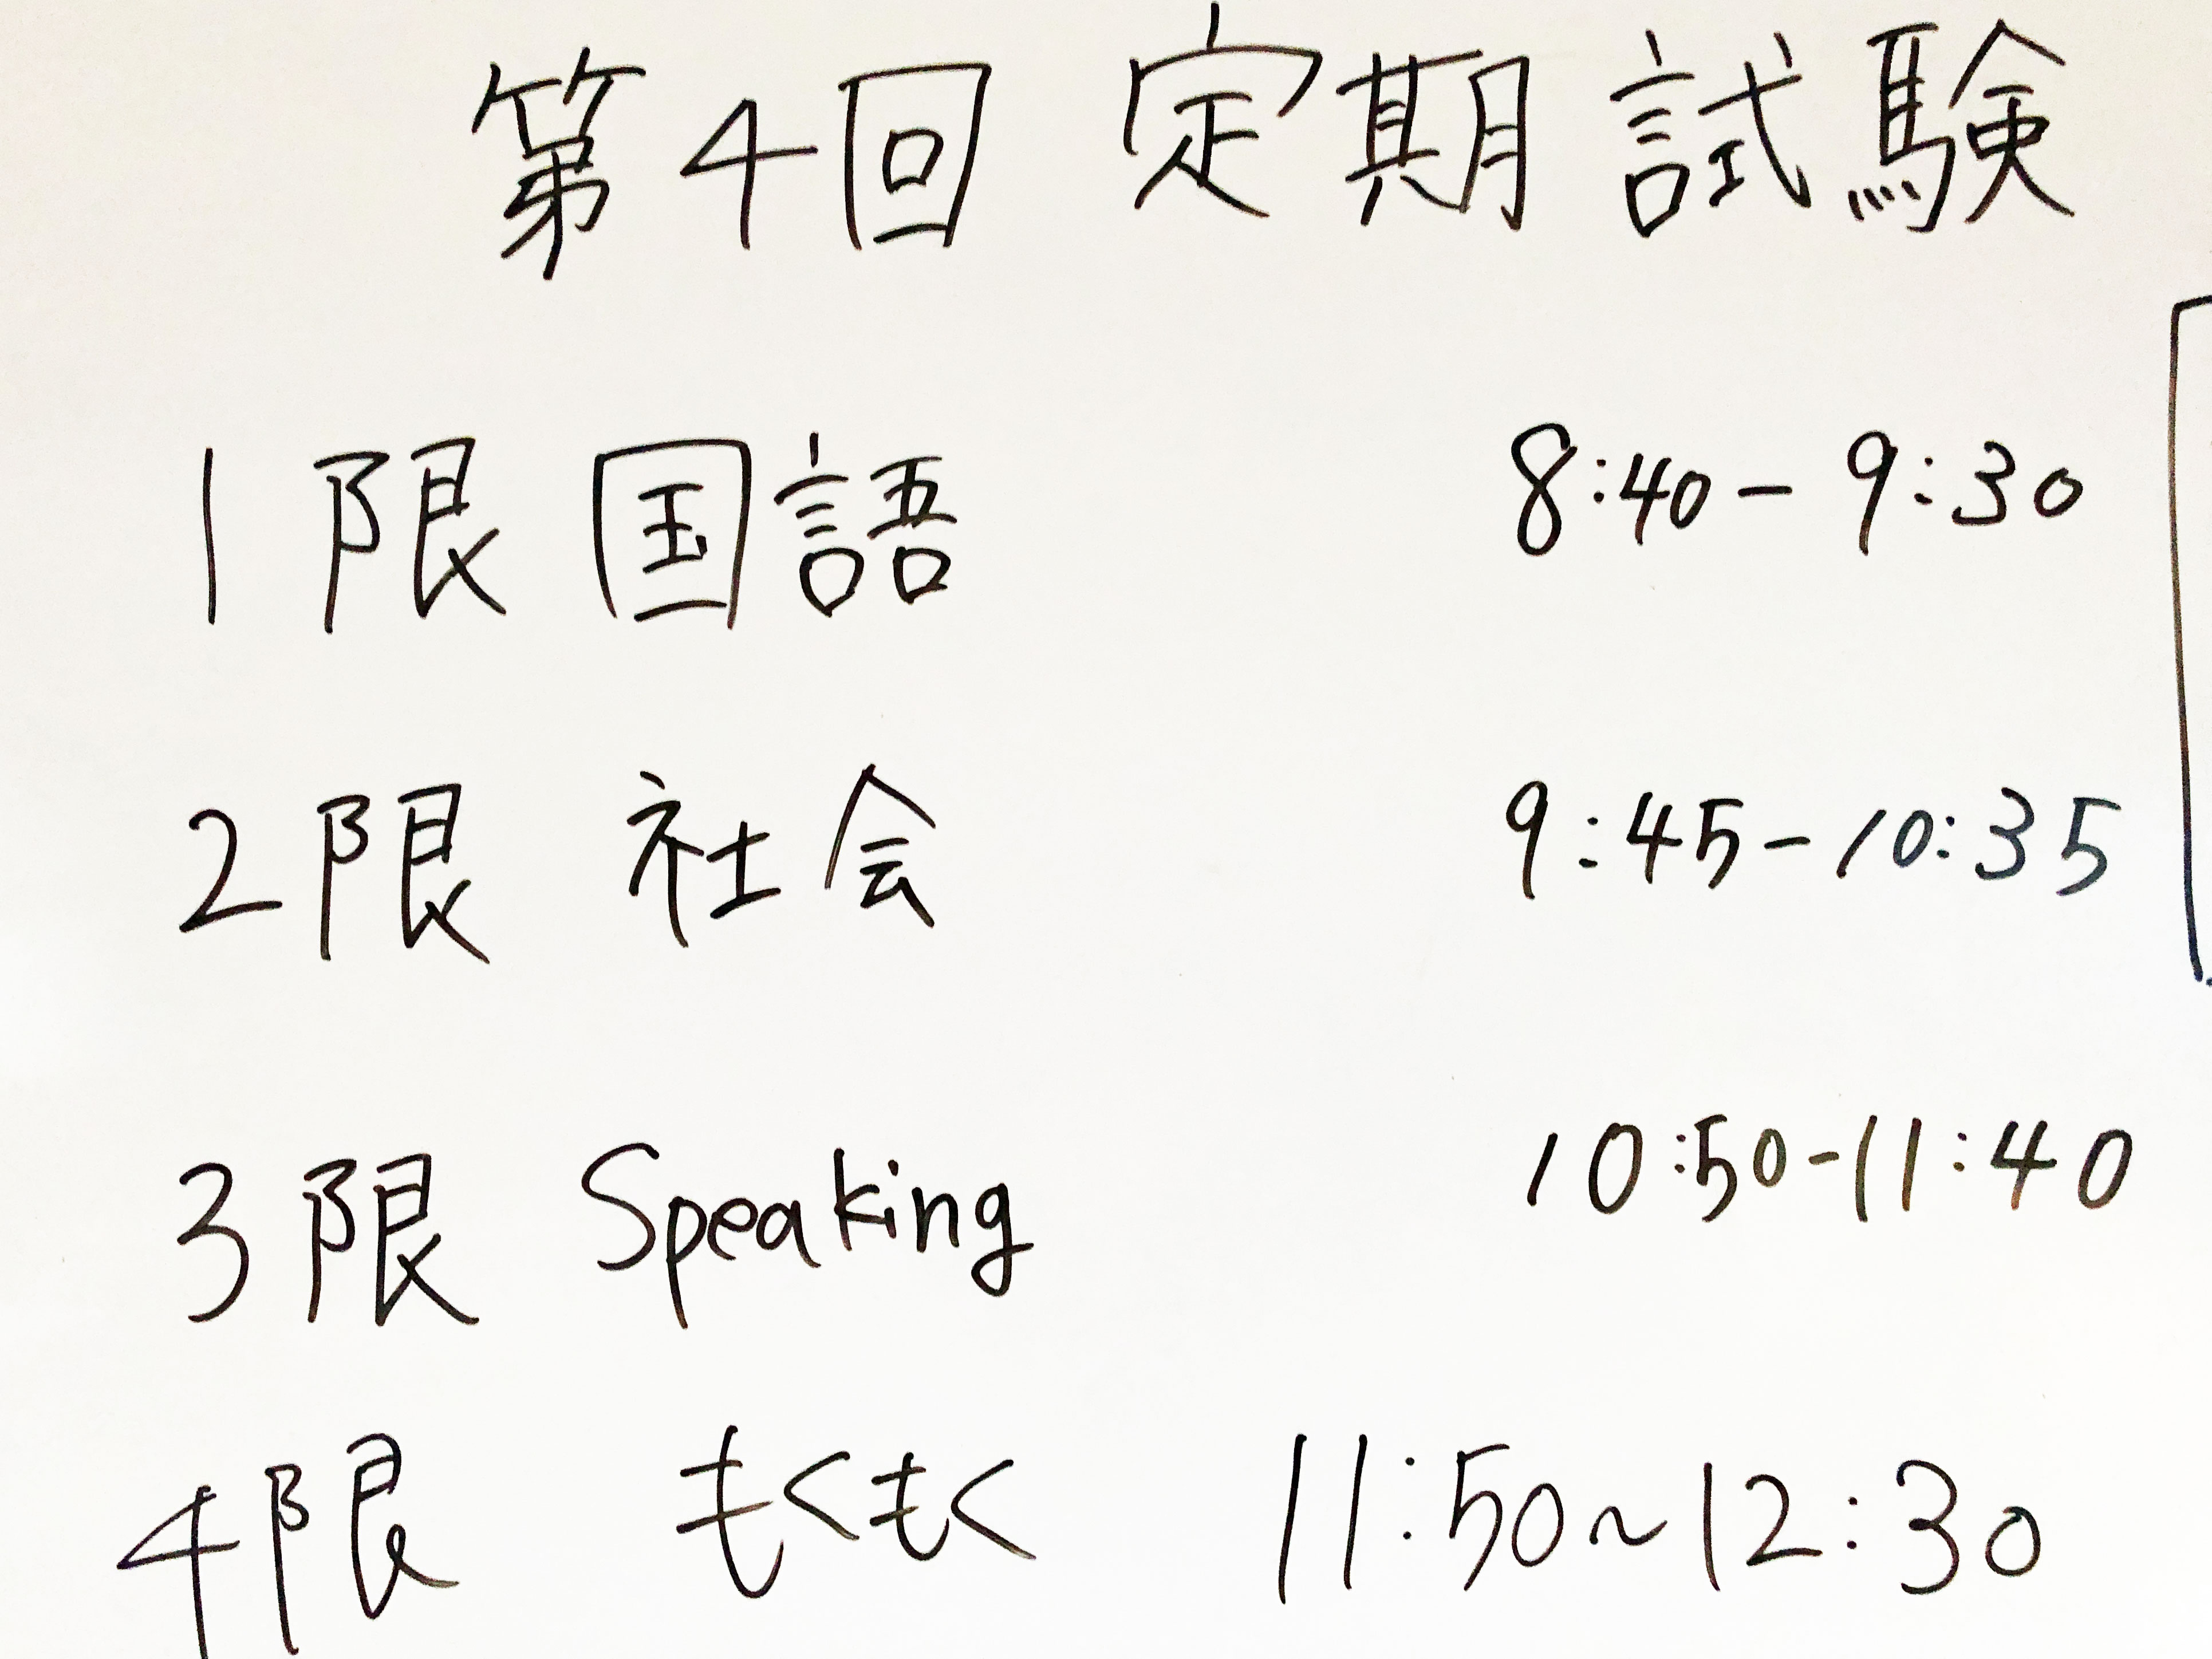 第4回 定期試験
1限 国語 8:40-9:30
2限 社会 9:45-10:35
3限 Speaking 10:50-11:40
4限 もくもく 11:50~12:30